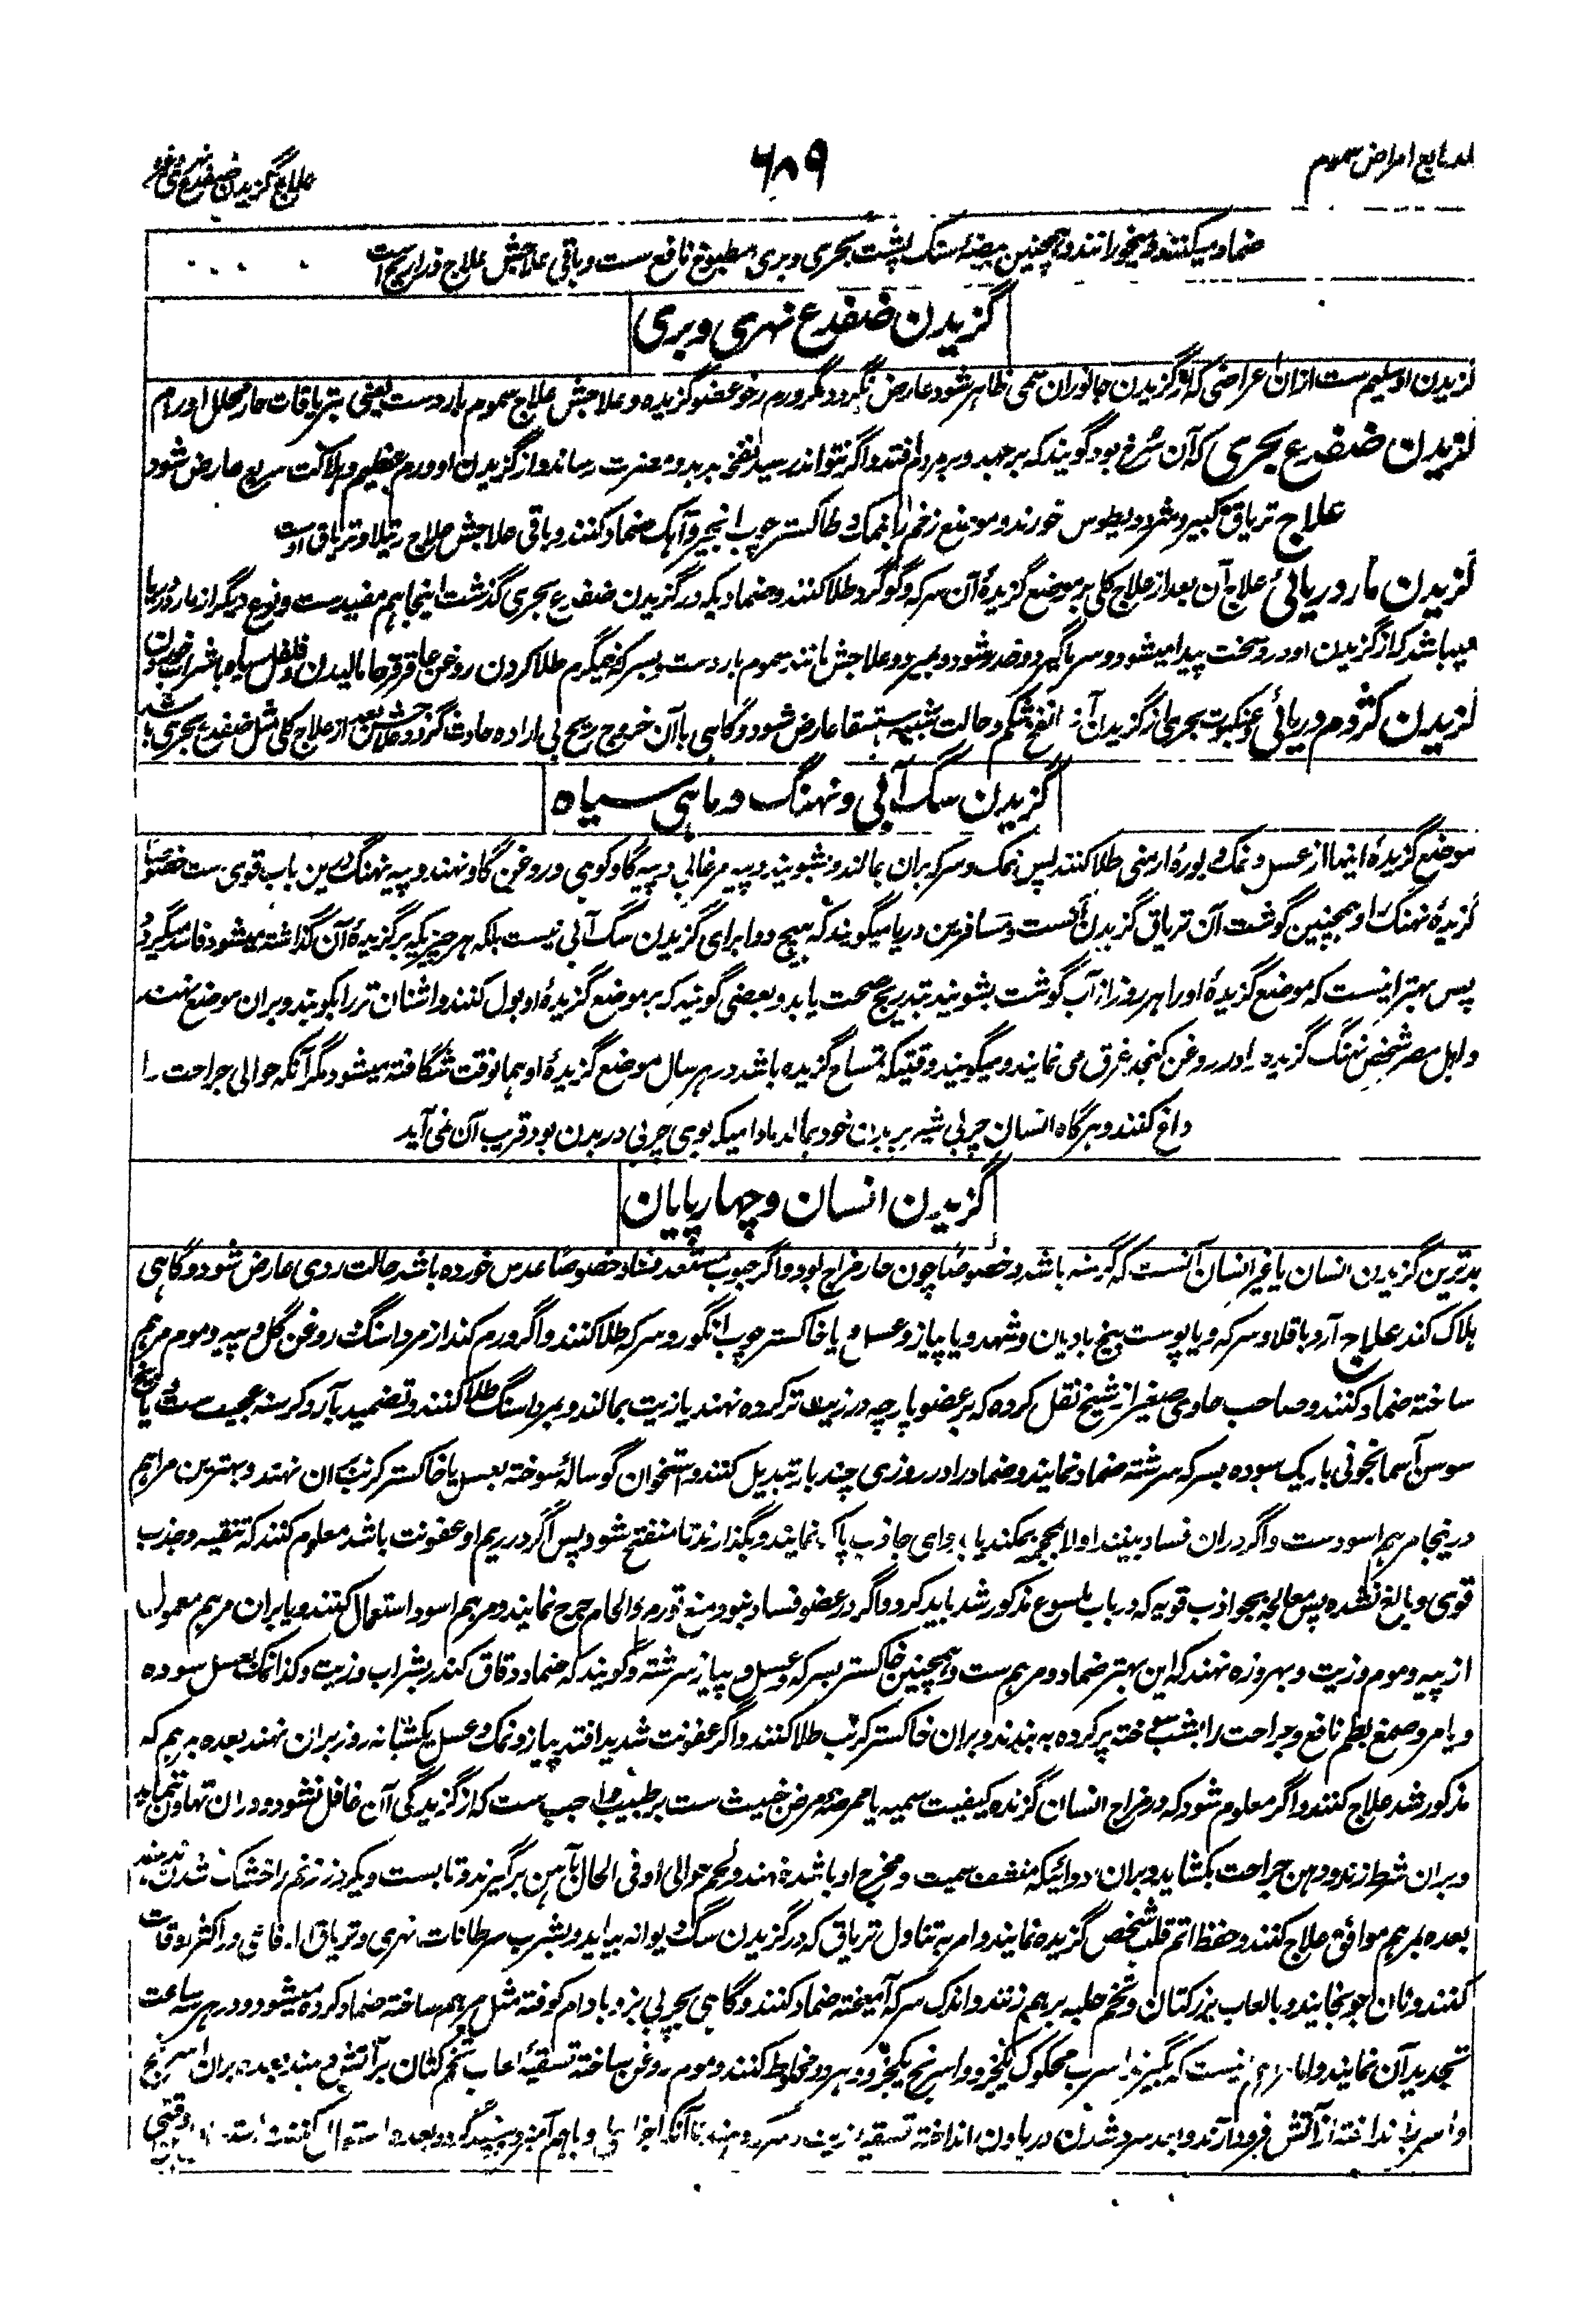 امراض سموم
۶۸۹
علاج گزیدن ضفدع نهری وغیره
ضماد میکنند و میخورانند و همچنین بیضهٔ سنگ پشت بحری و بری مطبوخ نافع ست و باقی علاجش علاج ذراریح است
گزیدن ضفدع نهری و بری
گزیدن او سلیم ست ازان اعراضی که از گزیدن جانوران سمی ظاهر شود عارض نگردد مگر ورم رخو عضو گزیده و علاجش علاج سموم بارد ست یعنی بتریاقات حار محلل اورام
گزیدن ضفدع بحری که آن سرخ بود گویند که بر جهد و بر مردم افتد و اگر نتواند رسید نفخ بر بدو مضرت رساند و از گزیدن او ورم عظیم و هلاکت سریع عارض شود
علاج تریاق کبیر و مثرودیطوس خورند و موضع زخم را بنمک و خاکستر چوب انجیر و آهک ضماد کنند و باقی علاجش علاج رتیلا و تریاق اوست
گزیدن مار دریائی علاج آن بعد از علاج کلی بر موضع گزیدهٔ آن سرکه و گوگرد طلا کنند و ضمادیکه در گزیدن ضفدع بحری گذشت اینجا هم مفید ست و نوع دیگر از مار دریا
میباشد که از گزیدن او درد سخت پیدا میشود و سرما گیرد و خدر شود و بمیرد و علاجش مانند سموم بارد ست و بسرکه نیمگرم طلا کردن روغن عاقرقرحا مالیدن و فلفل سیاه با شراب خوردن
گزیدن کژدم دریائی و عنکبوت بحری از گزیدن آن انفخ شکم و حالت شبیه باستسقا عارض شود و گاهی با آن خروج ریح بی اراده حادث گردد و علاجش بعد از علاج کلی مثل ضفدع بحری باشد
گزیدن سگ آبی و نهنگ و ماهی سیاه
موضع گزیدهٔ اینها از عسل و نمک و بورهٔ ارمنی طلا کنند پس نمک و سرکه بران بمالند و بشویند و پیه مرغابی و پیه گاو کوهی و روغن گاو نهند و پیه نهنگ درین باب قوی ست خصوصا
گزیدهٔ نهنگ را و همچنین گوشت آن تریاق گزیدن آنست و مسافرین دریا میگویند که هیچ دوا برای گزیدن سگ آبی نیست بلکه هر چیزیکه بر گزیدهٔ آن گذاشته میشود فاسد میگردد
پس بهتر اینست که موضع گزیدهٔ او را هر روز از آب گوشت بشویند بتدریج صحت یابد و بعضی گویند که بر موضع گزیدهٔ او بول کنند و اشنان تر را بکوبند و بران موضع نهند
و اهل مصر شخص نهنگ گزیده را در روغن کنجد غرق می نمایند و میگویند وقتیکه تمساح گزیده باشد در هر سال موضع گزیدهٔ او همانوقت شگافته میشود مگر آنکه حوالی جراحت را
داغ کنند و هرگاه انسان چربی شیر بر بدن خود بمالد مادامیکه بوی چربی در بدن بود قریب آن نمی آید
گزیدن انسان و چهارپایان
بدترین گزیدن انسان یا غیر انسان آنست که گرسنه باشد و خصوصاً چون حار مزاج بود و اگر حبوب مستعد فساد خصوصا عدس خورده باشد حالت ردی عارض شود و گاهی
هلاک کند علاج آرد باقلا و سرکه و یا پوست بیخ بادیان و شهد و یا پیاز و عسل و یا خاکستر چوب انگور و سرکه طلا کنند و اگر ورم کند از مرداسنگ روغن گل و پیه و موم مرهم
ساخته ضماد کنند و صاحب حاوی صغیر از شیخ نقل کرده که بر عضو پارچه در زیت تر کرده نهند یا زیت بمالند و بمرداسنگ طلا کنند و تضمید بآرد کرسنه عجیب ست یا بیخ
سوسن آسمانجونی باریک سوده بسرکه سرشته ضماد نمایند و ضماد را در روزی چند بار تبدیل کنند و استخوان گوسالهٔ سوخته بعسل یا خاکستر کرنب بران نهند و بهترین مراهم
درینجا مرهم اسود ست و اگر دران فساد بینند اولا بمحجمه بمکند یا بدوای جاذب پاک نمایند و بگذارند تا منفتح شود پس اگر در ریم او عفونت باشد معلوم کنند که تنقیه و جذب
قوی و بالغ نشده پس معالجه بجواذب قویه که در باب ملسوع مذکور شد باید کرد و اگر در عضو فساد نبود منع تورم و الحام جرح نمایند و مرهم اسود استعمال کنند و یا بران مرهم معمول
از پیه و موم و زیت و بهروزه نهند که این بهتر ضماد و مرهم ست و همچنین خاکستر بسرکه و عسل و پیاز سرشته و گویند که ضماد دقاق کندر بشراب و زیت و کذا نمک بعسل سوده
و یا مر و صمغ بطم نافع و جراحت را بشب سوخته پر کرده به بندند و بران خاکستر کرنب طلا کنند و اگر عفونت شدید افتد پیاز و نمک و عسل یکشبانه روز بران نهند بعده بمرهم که
مذکور شد علاج کنند و اگر معلوم شود که در مزاج انسان گزنده کیفیت سمیه یا ممرضه مرض خبیث ست بر طبیب واجب ست که از گزیدگی آن غافل نشود و دران تهاون ننماید
و بران شرط زند و دهن جراحت بکشاید و بران دوائیکه منشف سمیت و مخرج او باشد نهند و لحم حوالی او فی الحال بآهن بر گیرند و تا بست و یکروز زخم را خشک شدن ندهند
بعده بمرهم موافق علاج کنند و حفظ اتم قلب شخص گزیده نمایند و امر به تناول تریاق که در گزیدن سگ دیوانه بیاید و بشرب سرطانات نهری و تریاق فاعی در اکثر اوقات
کنند و نان جو بخایند و با لعاب بزر کتان و تخم حلبه بر هم زنند و اندک سرکه آمیخته ضماد کنند و گاهی بچربی بز و بادام کوفته مثل مرهم ساخته ضماد کرده میشود و در هر سه ساعت
تجدید آن نمایند و اما مرهم اینست که بگیرند اسرب محکوک یکجزو و اسرنج یکجزو و هر دو مخلوط کنند و موم روغن ساخته تسقیهٔ لعاب تخم کتان بر آتش دهند بعده بران اسرنج
و اسرب انداخته از آتش فرود آرند و بعد سرد شدن در هاون انداخته تسقیهٔ زیت و سرکه دهند تا آنکه اجزا و باهم آمیزد سپید گردد و بعده استعمال کنند وقتی